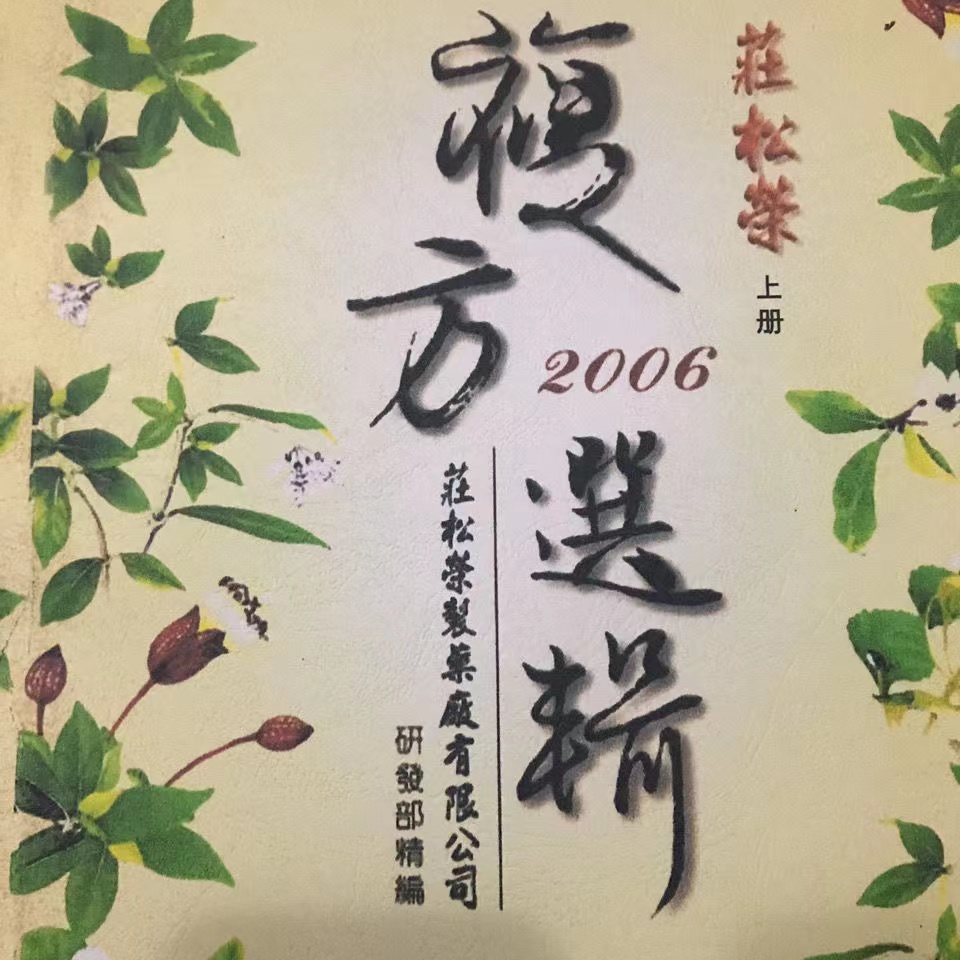 莊松榮
上册
複方
2006
選輯
莊松榮製藥廠有限公司
研發部精編